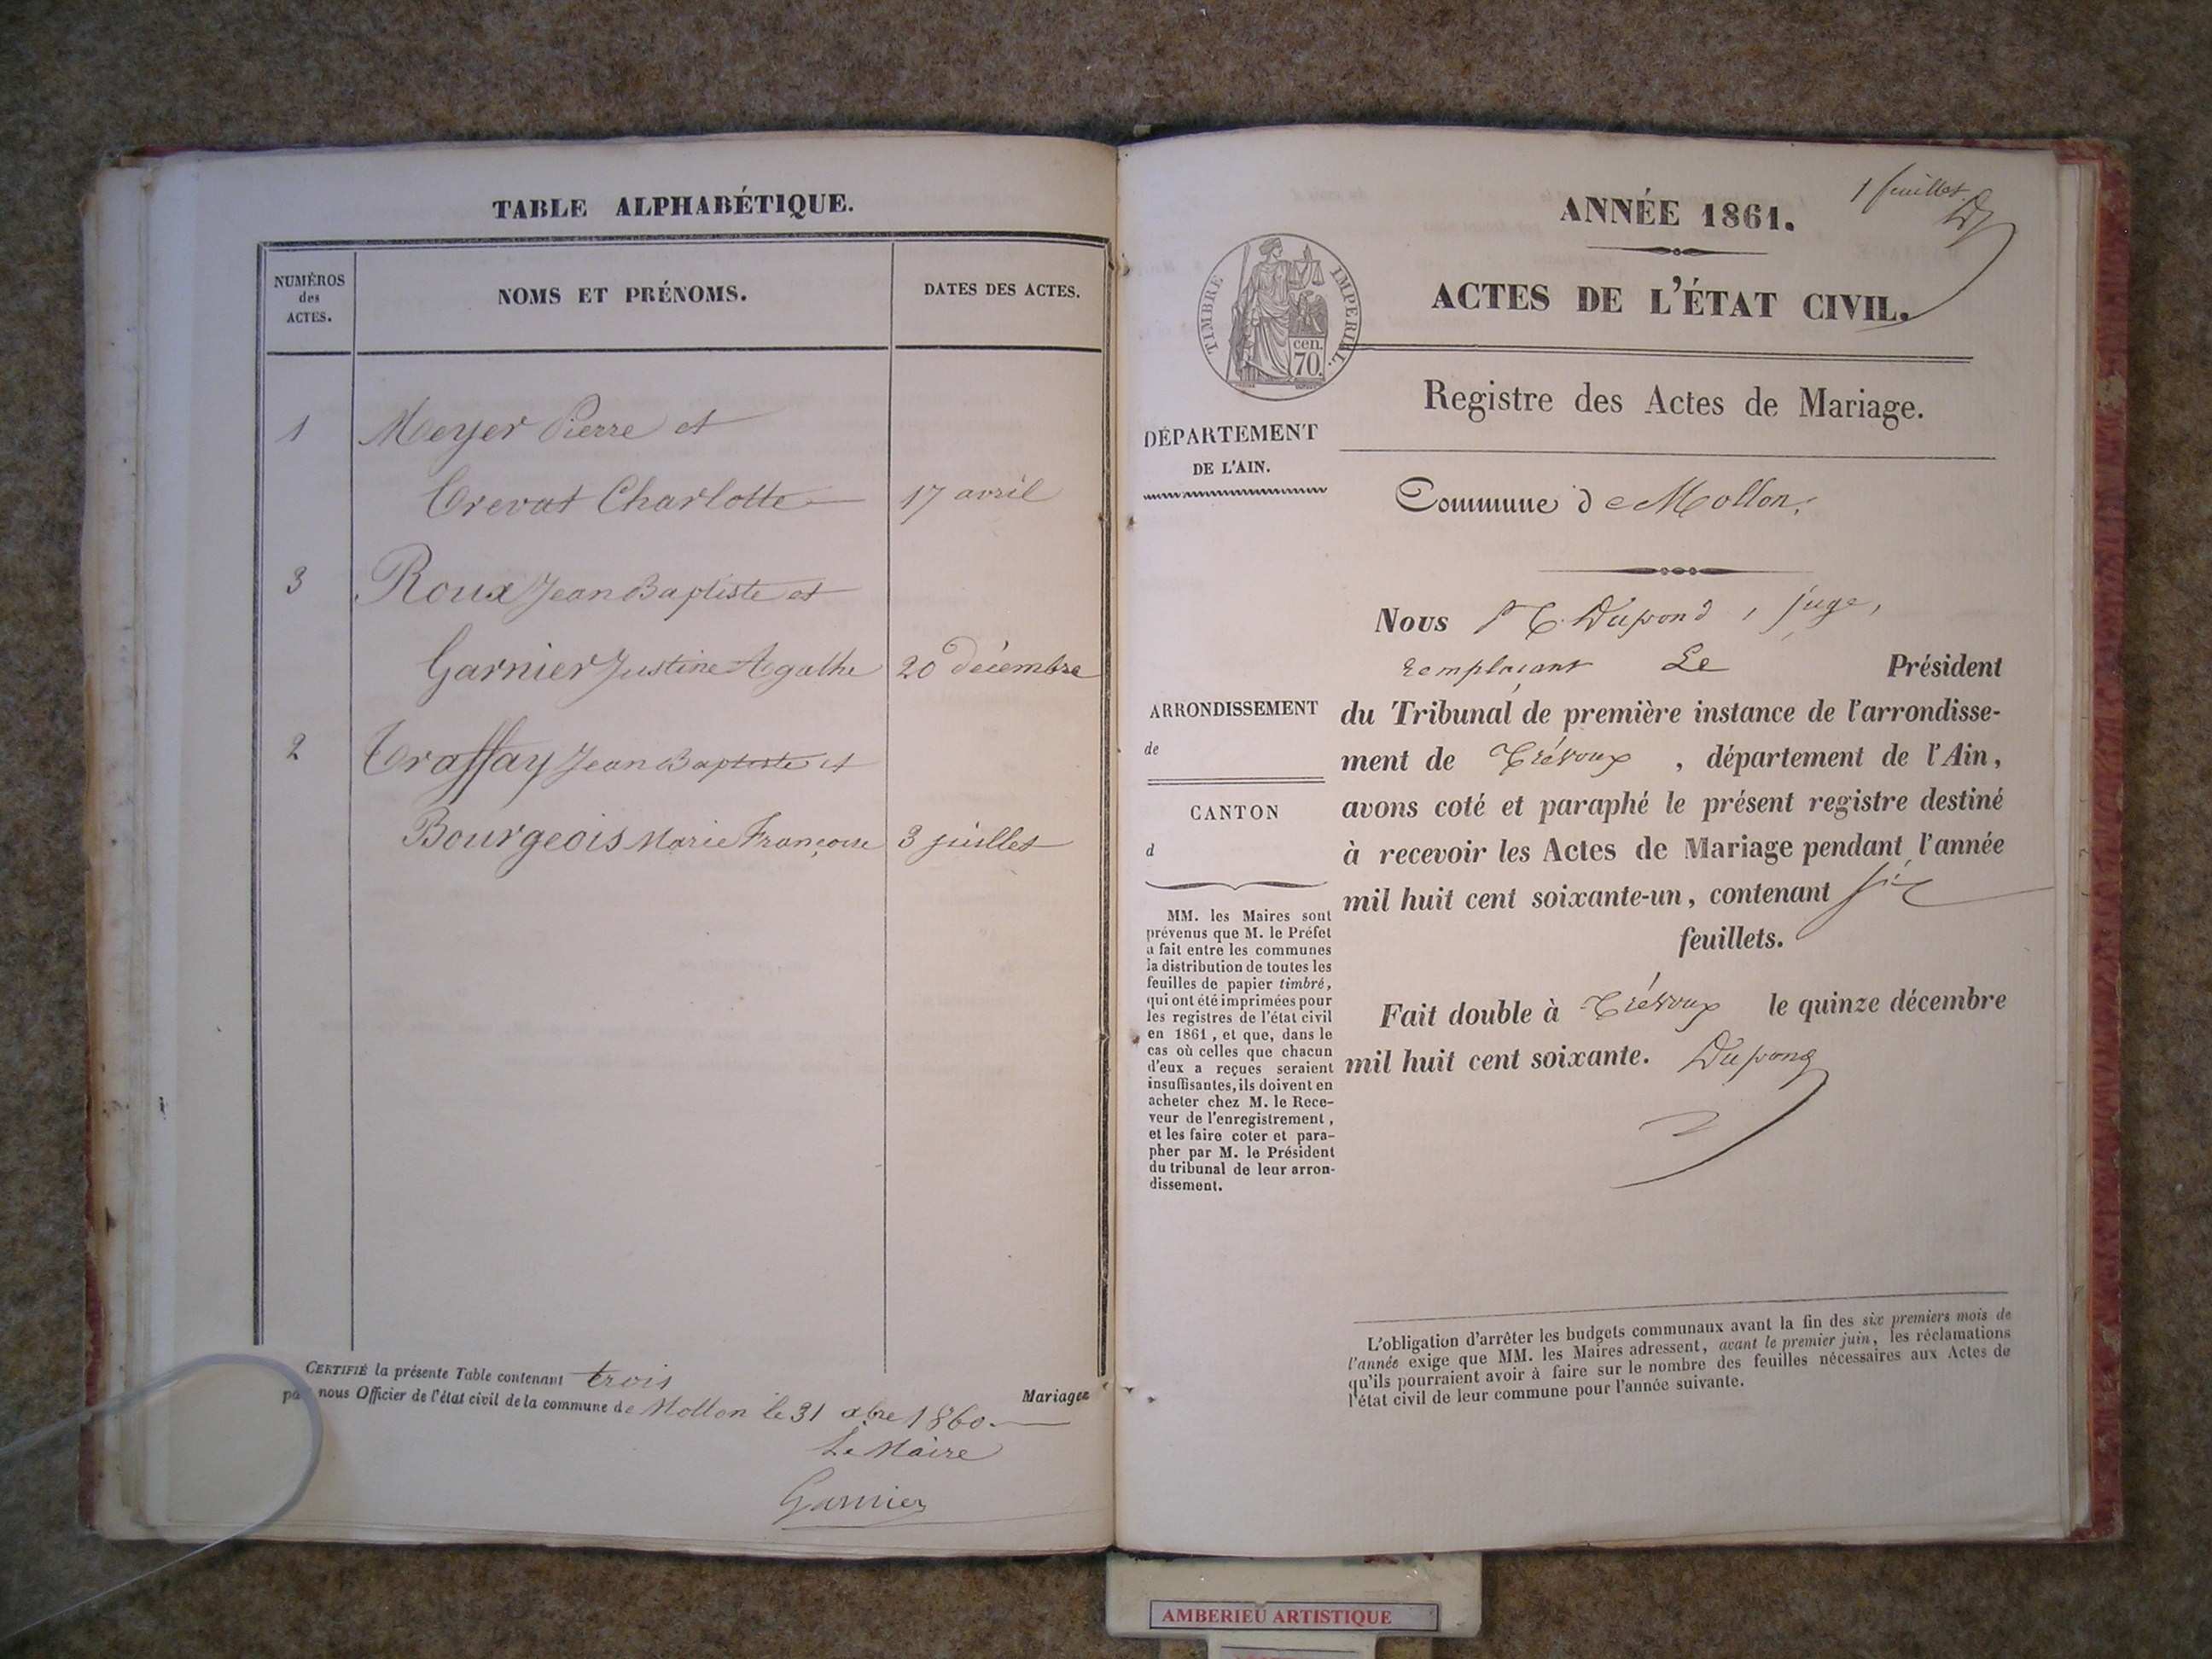 TABLE ALPHABÉTIQUE.
NUMÉROS
des
ACTES.
NOMS ET PRÉNOMS.
DATES DES ACTES.
1 Meyer Pierre et
Crevat Charlotte 17 avril
3 Roux Jean Baptiste et
Garnier Justine Agathe 20 décembre
2 Traffay Jean Baptiste et
Bourgeois Marie Françoise 3 juillet
CERTIFIÉ la présente Table contenant trois
Mariages
nous Officier de l'état civil de la commune de Mollon le 31 xbre 1860.
Le Maire
Garnier
1 feuillet
ANNÉE 1861.
ACTES DE L'ÉTAT CIVIL.
TIMBRE IMPERIAL.
cen.
70.
Registre des Actes de Mariage.
DÉPARTEMENT
DE L'AIN.
Commune de Mollon.
Nous Dupond, juge,
remplaçant Le Président
ARRONDISSEMENT
de
CANTON
d
du Tribunal de première instance de l'arrondisse-
ment de Trévoux, département de l'Ain,
avons coté et paraphé le présent registre destiné
à recevoir les Actes de Mariage pendant l'année
mil huit cent soixante-un, contenant six
feuillets.
Fait double à Trévoux le quinze décembre
mil huit cent soixante. Dupond
MM. les Maires sont
prévenus que M. le Préfet
a fait entre les communes
la distribution de toutes les
feuilles de papier timbré,
qui ont été imprimées pour
les registres de l'état civil
en 1861, et que, dans le
cas où celles que chacun
d'eux a reçues seraient
insuffisantes, ils doivent en
acheter chez M. le Rece-
veur de l'enregistrement,
et les faire coter et para-
pher par M. le Président
du tribunal de leur arron-
dissement.
L'obligation d'arrêter les budgets communaux avant la fin des six premiers mois de
l'année exige que MM. les Maires adressent, avant le premier juin, les réclamations
qu'ils pourraient avoir à faire sur le nombre des feuilles nécessaires aux Actes de
l'état civil de leur commune pour l'année suivante.
AMBERIEU ARTISTIQUE